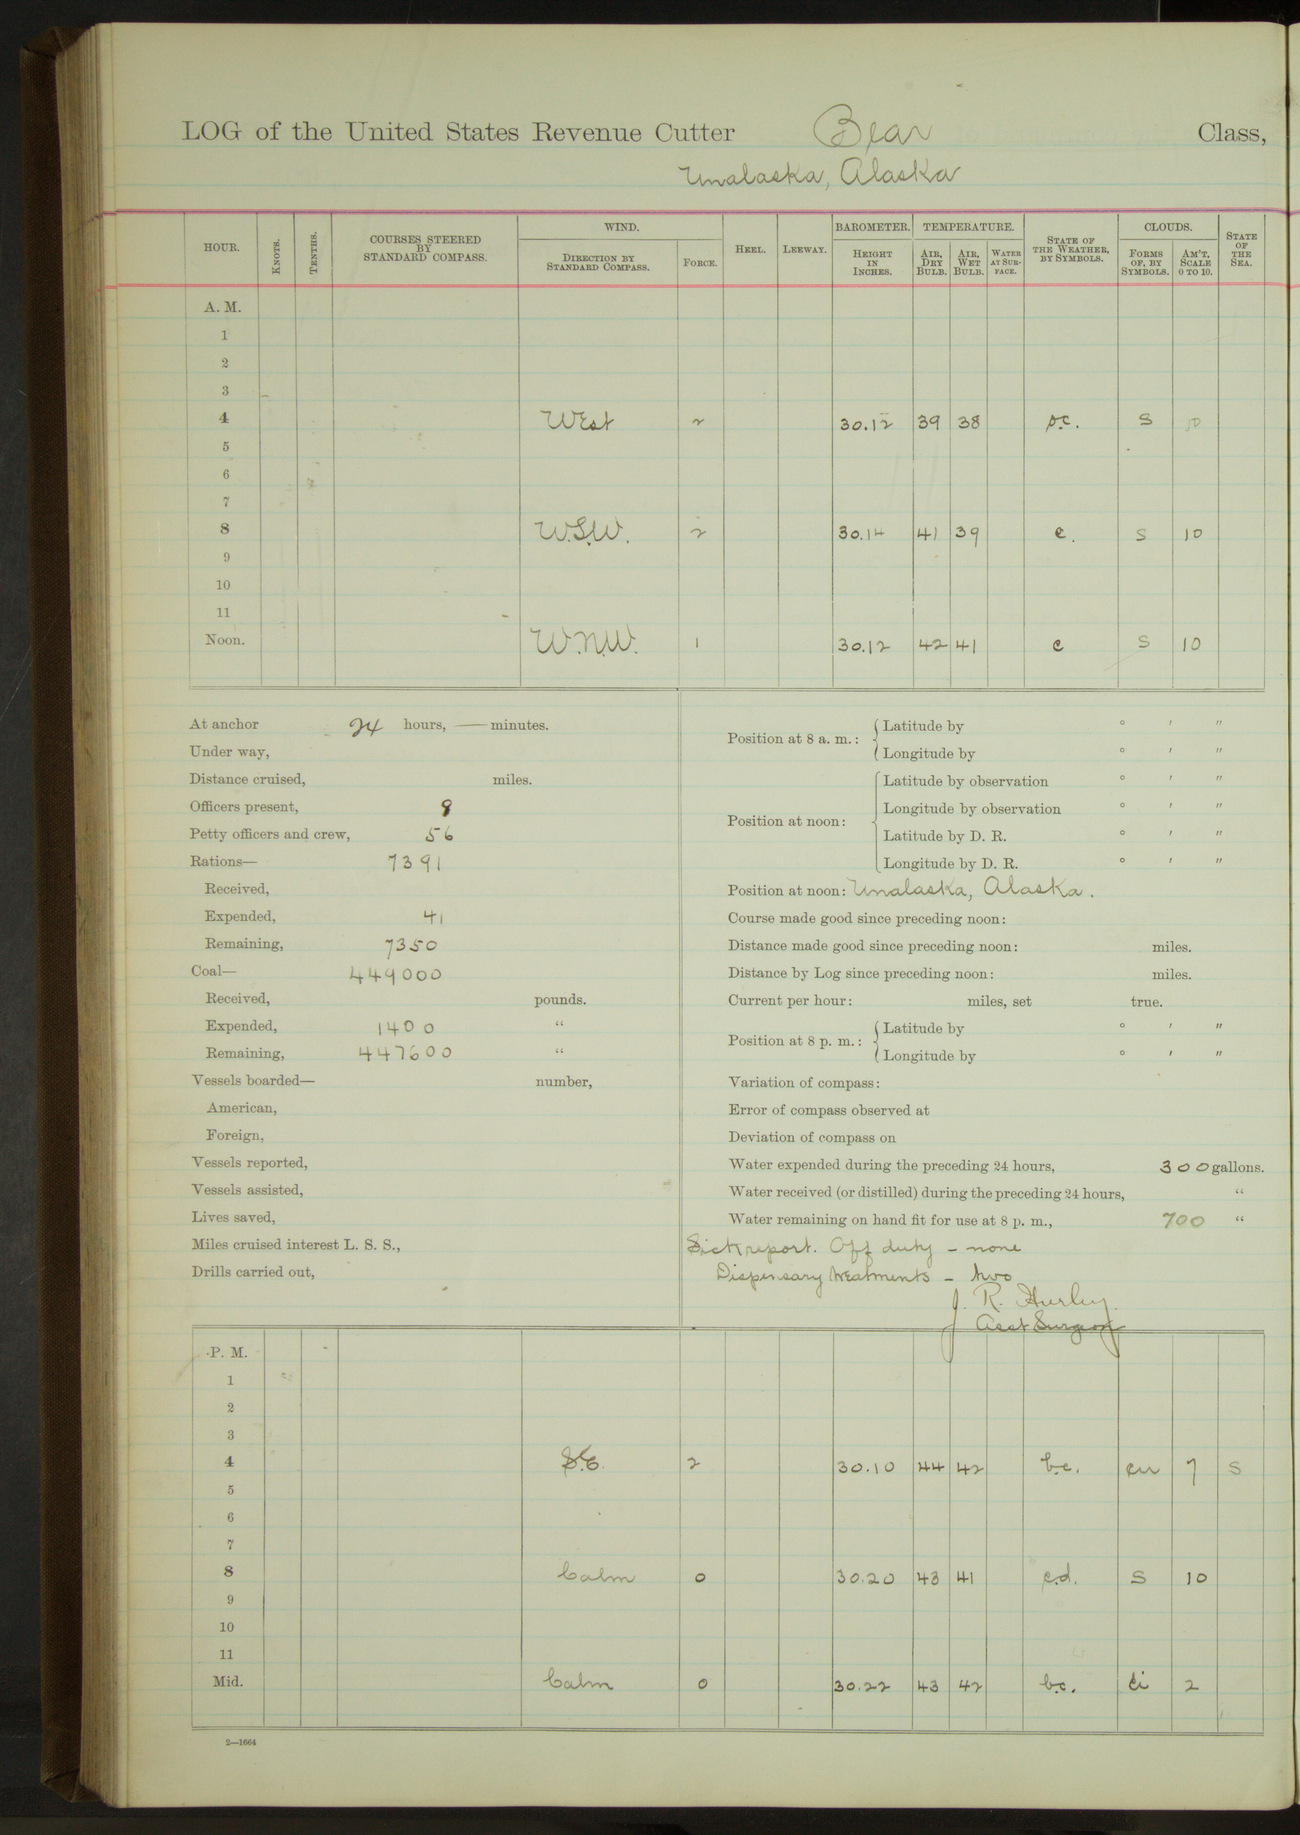 LOG of the United States Revenue Cutter Bear Class,
Unalaska, Alaska
HOUR. KNOTS. TENTHS. COURSES STEERED BY STANDARD COMPASS. WIND. DIRECTION BY STANDARD COMPASS. FORCE. HEEL. LEEWAY. BAROMETER. HEIGHT IN INCHES. TEMPERATURE. AIR, DRY BULB. AIR, WET BULB. WATER AT SUR-FACE. STATE OF THE WEATHER, BY SYMBOLS. CLOUDS. FORMS OF, BY SYMBOLS. AM'T, SCALE 0 TO 10. STATE OF THE SEA.
A. M.
1
2
3
4 West 2 30.12 39 38 o.c. S 10
5
6
7
8 W.S.W. 2 30.14 41 39 c. S 10
9
10
11
Noon. W.N.W. 1 30.12 42 41 c S 10
At anchor 24 hours, — minutes.
Under way,
Distance cruised, miles.
Officers present, 9
Petty officers and crew, 56
Rations— 7391
Received,
Expended, 41
Remaining, 7350
Coal— 449000
Received, pounds.
Expended, 1400 "
Remaining, 447600 "
Vessels boarded— number,
American,
Foreign,
Vessels reported,
Vessels assisted,
Lives saved,
Miles cruised interest L. S. S.,
Drills carried out,
Position at 8 a. m.: Latitude by ° ′ ″
Longitude by ° ′ ″
Position at noon: Latitude by observation ° ′ ″
Longitude by observation ° ′ ″
Latitude by D. R. ° ′ ″
Longitude by D. R. ° ′ ″
Position at noon: Unalaska, Alaska.
Course made good since preceding noon:
Distance made good since preceding noon: miles.
Distance by Log since preceding noon: miles.
Current per hour: miles, set true.
Position at 8 p. m.: Latitude by ° ′ ″
Longitude by ° ′ ″
Variation of compass:
Error of compass observed at
Deviation of compass on
Water expended during the preceding 24 hours, 300 gallons.
Water received (or distilled) during the preceding 24 hours, "
Water remaining on hand fit for use at 8 p. m., 700 "
Sick report. Off duty – none
Dispensary treatments – two
J. R. Hurley.
Asst Surgeon
P. M.
1
2
3
4 S.E. 2 30.10 44 42 b.c. cu 7 S
5
6
7
8 Calm 0 30.20 43 41 c.d. S 10
9
10
11
Mid. Calm 0 30.22 43 42 b.c. ci 2
2—1664